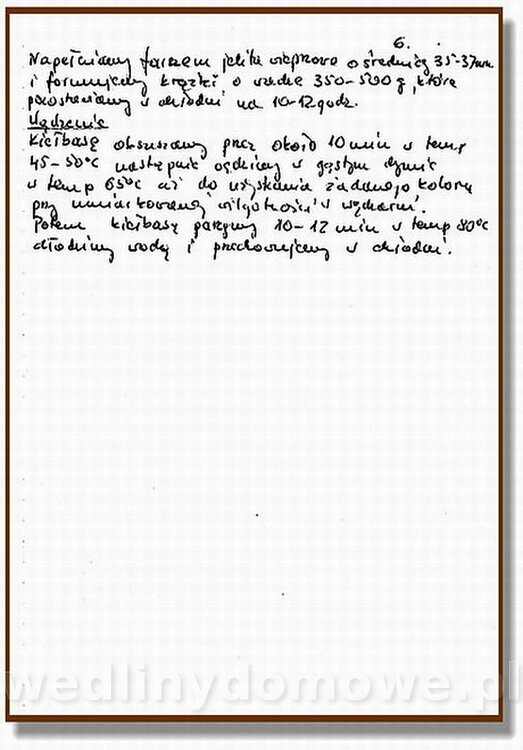 6.
Napełniamy farszem jelita wieprzowe o średnicy 35-37mm.
i formujemy krążki o wadze 350-500g, które
pozostawiamy w chłodni na 10-12godz.
Wędzenie
Kiełbasę obsuszamy przez około 10 min w temp
45-50°C następnie wędzimy w gęstym dymie
w temp 65°C aż do uzyskania żądanego koloru
przy umiarkowanej wilgotności w wędzarni.
Potem kiełbasę parzymy 10-12 min w temp 80°C
chłodzimy wodą i przechowujemy w chłodni.
wedlinydomowe.pl